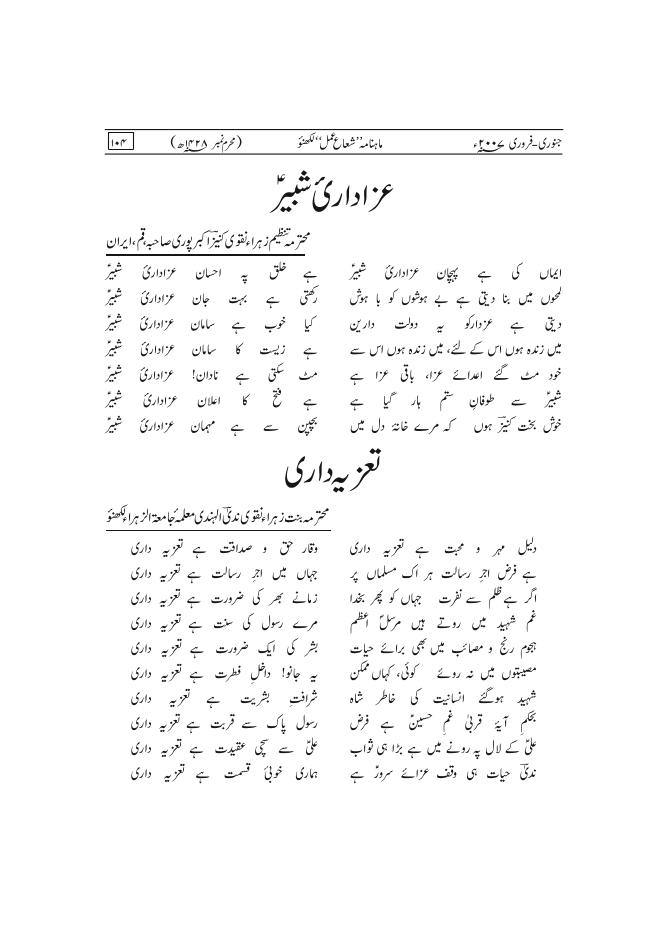 جنوری۔فروری ۲۰۰۷ء ماہنامہ ’’شعاع عمل‘‘ لکھنؤ (محرم نمبر ۱۴۲۸ھ) ۱۰۴
عزاداریٔ شبیرؑ
محترمہ تنظیم زہراء نقوی کنیزؔ اکبرپوری صاحبہ، قم، ایران
ایماں کی ہے پہچان عزاداریٔ شبیرؑ ہے خلق پہ احسان عزاداریٔ شبیرؑ
لمحوں میں بنا دیتی ہے بے ہوشوں کو با ہوش رکھتی ہے بہت جان عزاداریٔ شبیرؑ
دیتی ہے عزدارکو یہ دولت دارین کیا خوب ہے سامان عزاداریٔ شبیرؑ
میں زندہ ہوں اس کے لئے، میں زندہ ہوں اس سے ہے زیست کا سامان عزاداریٔ شبیرؑ
خود مٹ گئے اعدائے عزا، باقی عزا ہے مٹ سکتی ہے نادان! عزاداریٔ شبیرؑ
شبیرؑ سے طوفانِ ستم ہار گیا ہے ہے فتح کا اعلان عزاداریٔ شبیرؑ
خوش بخت کنیزؔ ہوں کہ مرے خانۂ دل میں بچپن سے ہے مہمان عزاداریٔ شبیرؑ
تعزیہ داری
محترمہ بنت زہراء نقوی ندیٰؔ الہندی معلمۂ جامعۃ الزہراء لکھنؤ
دلیل مہر و محبت ہے تعزیہ داری وقار حق و صداقت ہے تعزیہ داری
ہے فرض اجرِ رسالت ہر اک مسلماں پر جہاں میں اجرِ رسالت ہے تعزیہ داری
اگر ہے ظلم سے نفرت جہاں کو پھر بخدا زمانے بھر کی ضرورت ہے تعزیہ داری
غم شہید میں روتے ہیں مرسلِؐ اعظم مرے رسول کی سنت ہے تعزیہ داری
ہجوم رنج و مصائب میں بھی برائے حیات بشر کی ایک ضرورت ہے تعزیہ داری
مصیبتوں میں نہ روئے کوئی، کہاں ممکن یہ جانو! داخلِ فطرت ہے تعزیہ داری
شہید ہوگئے انسانیت کی خاطر شاہ شرافتِ بشریت ہے تعزیہ داری
بحکمِ آیۂ قربیٰ غمِ حسینؑ ہے فرض رسول پاک سے قربت ہے تعزیہ داری
علیؑ کے لال پہ رونے میں ہے بڑا ہی ثواب علیؑ سے سچی عقیدت ہے تعزیہ داری
ندیٰؔ حیات ہی وقف عزائے سرورؑ ہے ہماری خوبیٔ قسمت ہے تعزیہ داری